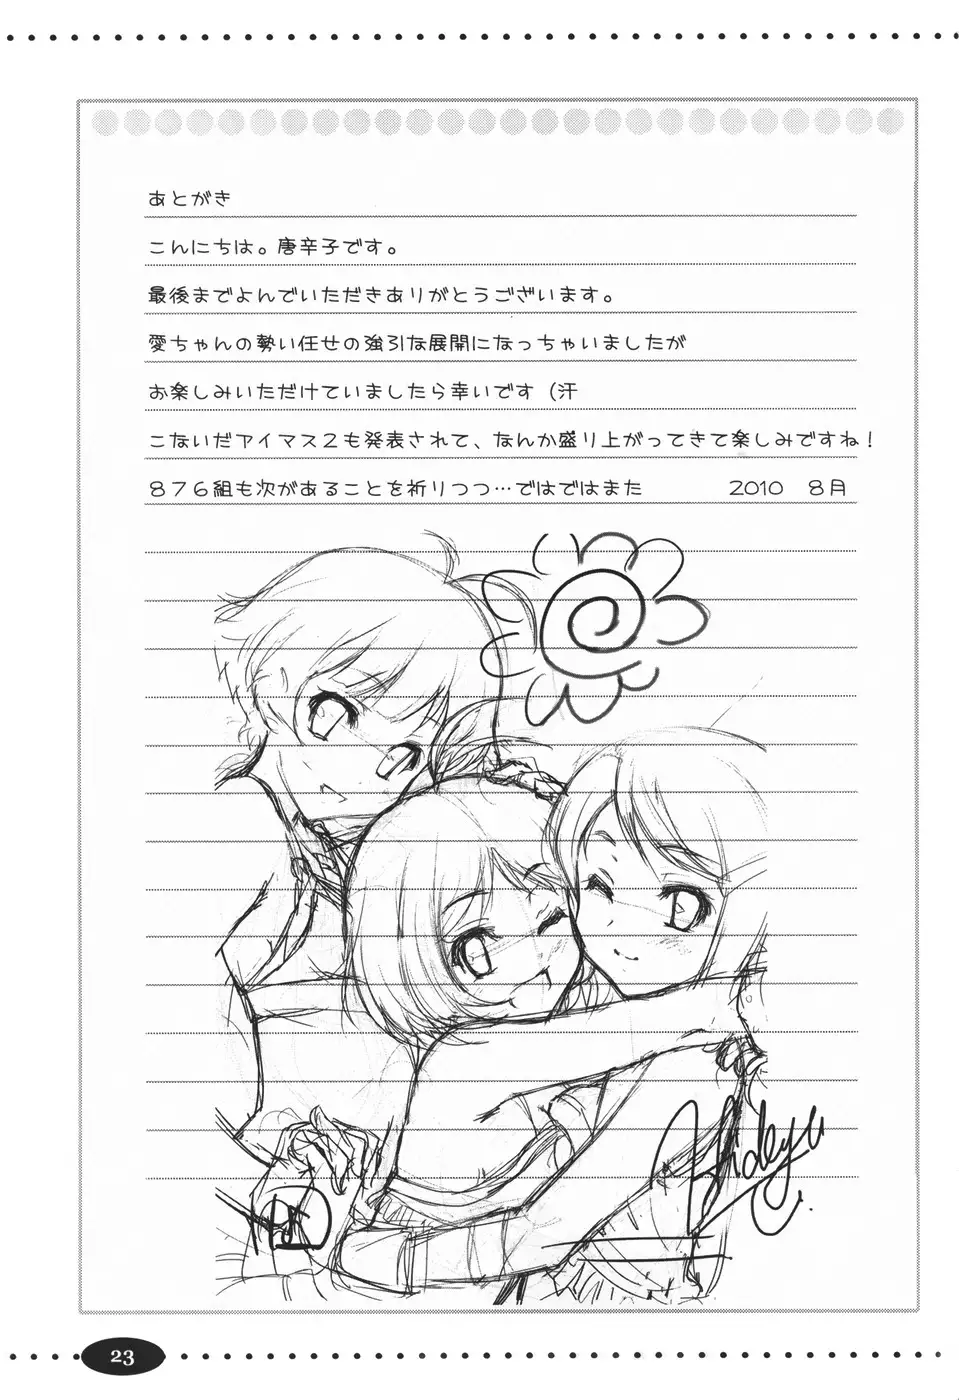 あとがき
こんにちは。唐辛子です。
最後までよんでいただきありがとうございます。
愛ちゃんの勢い任せの強引な展開になっちゃいましたが
お楽しみいただけていましたら幸いです（汗
こないだアイマス２も発表されて、なんか盛り上がってきて楽しみですね！
８７６組も次があることを祈りつつ…ではではまた　　　2010　８月
Hideyu
23